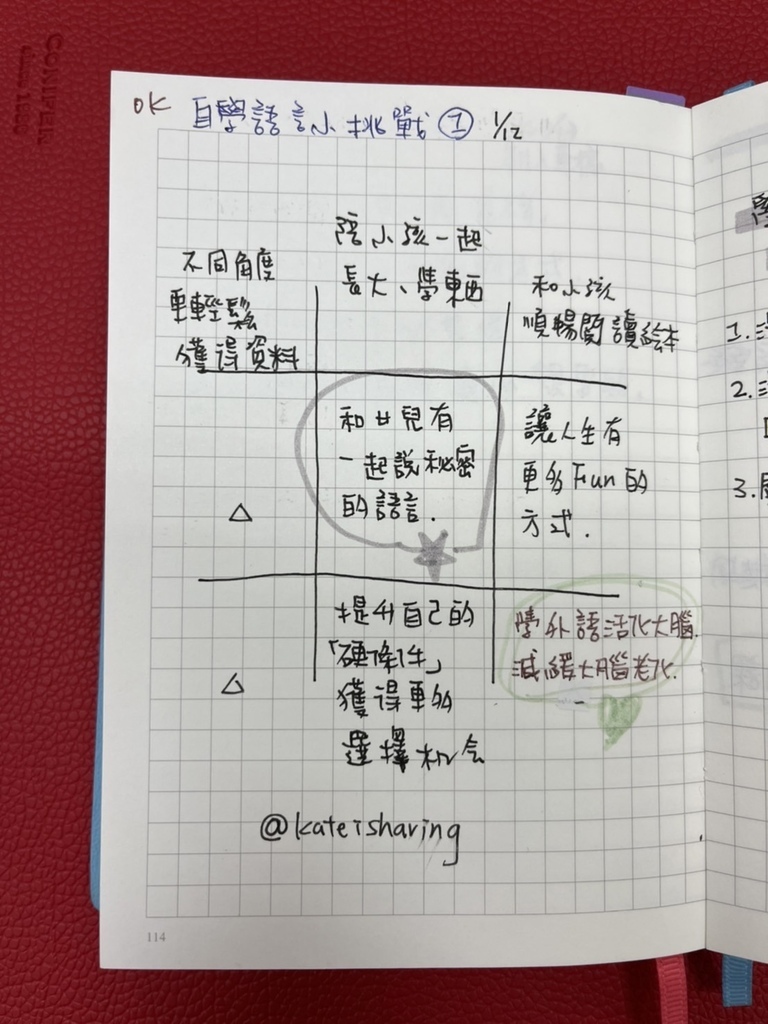 OK 自學語言小挑戰 ① 1/12
不同角度
更輕鬆
獲得資料
陪小孩一起
長大、學東西
和小孩
順暢閱讀繪本
和女兒有
一起說秘密
的語言.
讓人生有
更多Fun的
方式.
△
提升自己的
「硬條件」
獲得更多
選擇機会
學外語活化大腦.
減緩大腦老化.
△
@kateisharing
114
1.
2.
3.